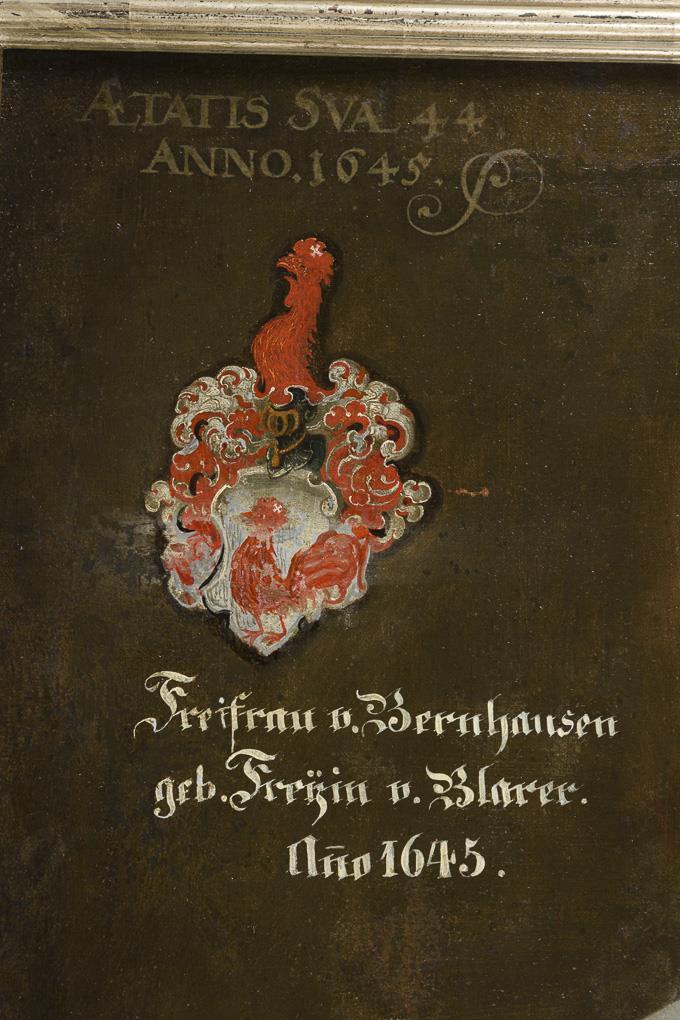 ÆTATIS SVÆ 44.
ANNO. 1645.
Freifrau v. Bernhausen
geb. Freÿin v. Blarer.
Ann̄o 1645.